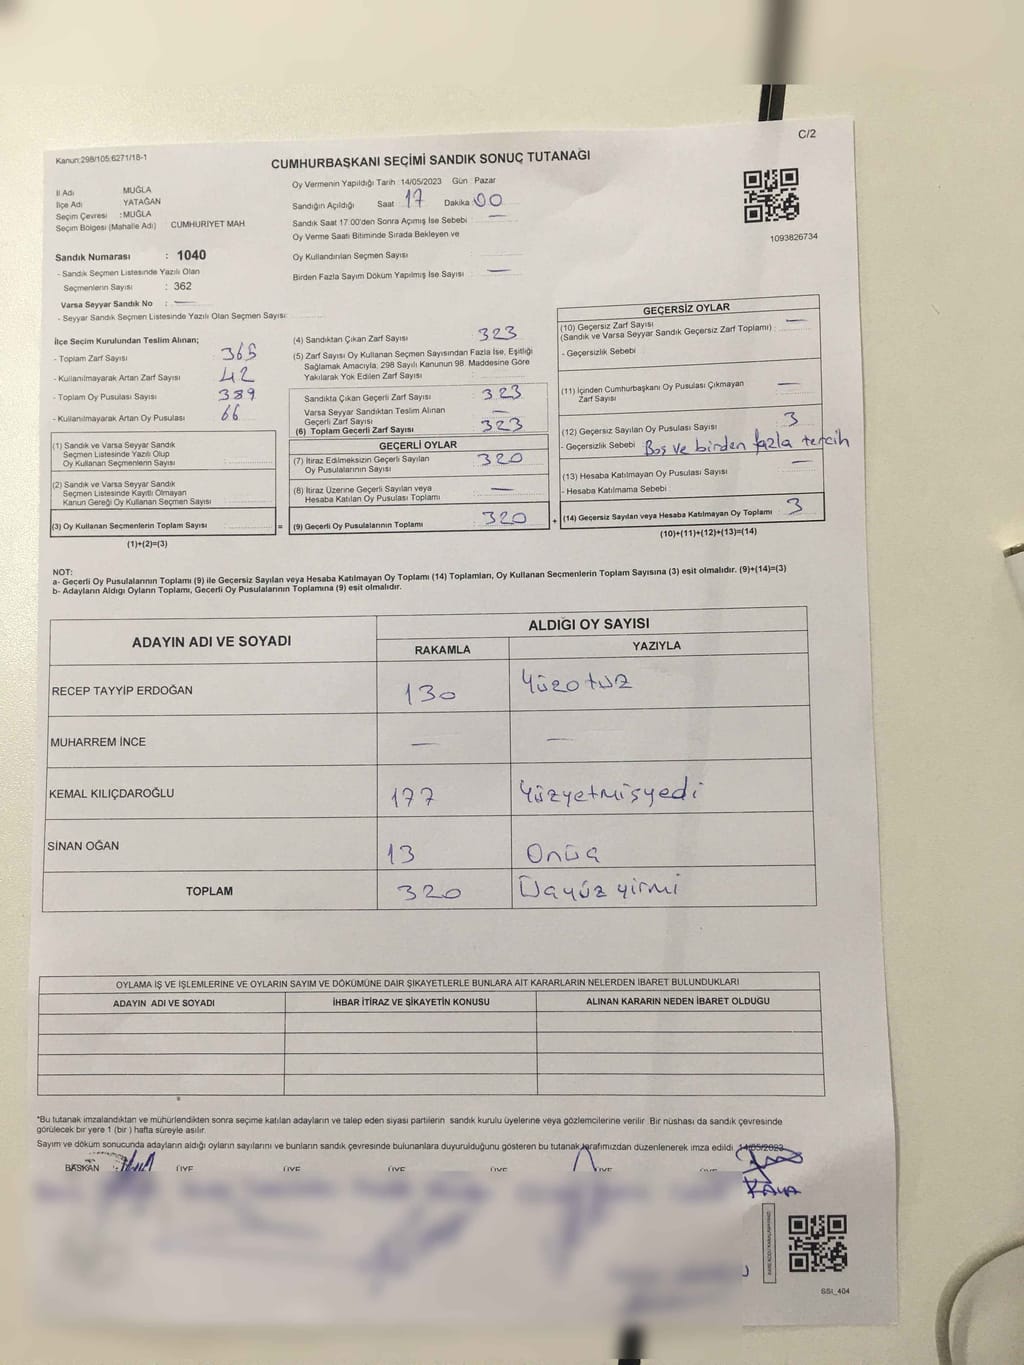 C/2
Kanun:298/105:6271/18-1
CUMHURBAŞKANI SEÇİMİ SANDIK SONUÇ TUTANAĞI
İl Adı MUĞLA
İlçe Adı YATAĞAN
Seçim Çevresi : MUĞLA
Seçim Bölgesi (Mahalle Adı) CUMHURİYET MAH
Sandık Numarası : 1040
- Sandık Seçmen Listesinde Yazılı Olan
Seçmenlerin Sayısı : 362
Varsa Seyyar Sandık No : —
- Seyyar Sandık Seçmen Listesinde Yazılı Olan Seçmen Sayısı:
Oy Vermenin Yapıldığı Tarih :14/05/2023 Gün : Pazar
Sandığın Açıldığı Saat 17 Dakika 00
Sandık Saat 17.00'den Sonra Açımış İse Sebebi —
Oy Verme Saati Bitiminde Sırada Bekleyen ve
Oy Kullandırılan Seçmen Sayısı
Birden Fazla Sayım Döküm Yapılmış İse Sayısı —
1093826734
İlçe Seçim Kurulundan Teslim Alınan;
- Toplam Zarf Sayısı 365
- Kullanılmayarak Artan Zarf Sayısı 42
- Toplam Oy Pusulası Sayısı 389
- Kullanılmayarak Artan Oy Pusulası 66
(1) Sandık ve Varsa Seyyar Sandık
Seçmen Listesinde Yazılı Olup
Oy Kullanan Seçmenlerin Sayısı
(2) Sandık ve Varsa Seyyar Sandık
Seçmen Listesinde Kayıtlı Olmayan
Kanun Gereği Oy Kullanan Seçmen Sayısı
(3) Oy Kullanan Seçmenlerin Toplam Sayısı =
(1)+(2)=(3)
(4) Sandıktan Çıkan Zarf Sayısı 323
(5) Zarf Sayısı Oy Kullanan Seçmen Sayısından Fazla İse, Eşitliği
Sağlamak Amacıyla; 298 Sayılı Kanunun 98. Maddesine Göre
Yakılarak Yok Edilen Zarf Sayısı
Sandıkta Çıkan Geçerli Zarf Sayısı 323
Varsa Seyyar Sandıktan Teslim Alınan
Geçerli Zarf Sayısı —
(6) Toplam Geçerli Zarf Sayısı 323
GEÇERLİ OYLAR
(7) İtiraz Edilmeksizin Geçerli Sayılan
Oy Pusulalarının Sayısı 320
(8) İtiraz Üzerine Geçerli Sayılan veya
Hesaba Katılan Oy Pusulası Toplamı —
(9) Geçerli Oy Pusulalarının Toplamı 320 +
GEÇERSİZ OYLAR
(10) Geçersiz Zarf Sayısı —
(Sandık ve Varsa Seyyar Sandık Geçersiz Zarf Toplamı) :
- Geçersizlik Sebebi
(11) İçinden Cumhurbaşkanı Oy Pusulası Çıkmayan
Zarf Sayısı —
(12) Geçersiz Sayılan Oy Pusulası Sayısı 3
- Geçersizlik Sebebi : Boş ve birden fazla tercih
(13) Hesaba Katılmayan Oy Pusulası Sayısı —
- Hesaba Katılmama Sebebi
(14) Geçersiz Sayılan veya Hesaba Katılmayan Oy Toplamı : 3
(10)+(11)+(12)+(13)=(14)
NOT:
a- Geçerli Oy Pusulalarının Toplamı (9) ile Geçersiz Sayılan veya Hesaba Katılmayan Oy Toplamı (14) Toplamları, Oy Kullanan Seçmenlerin Toplam Sayısına (3) eşit olmalıdır. (9)+(14)=(3)
b- Adayların Aldığı Oyların Toplamı, Geçerli Oy Pusulalarının Toplamına (9) eşit olmalıdır.
ADAYIN ADI VE SOYADI
ALDIĞI OY SAYISI
RAKAMLA YAZIYLA
RECEP TAYYİP ERDOĞAN 130 Yüzotuz
MUHARREM İNCE — —
KEMAL KILIÇDAROĞLU 177 Yüzyetmişyedi
SİNAN OĞAN 13 Onüç
TOPLAM 320 Üçyüz yirmi
OYLAMA İŞ VE İŞLEMLERİNE VE OYLARIN SAYIM VE DÖKÜMÜNE DAİR ŞİKAYETLERLE BUNLARA AİT KARARLARIN NELERDEN İBARET BULUNDUKLARI
ADAYIN ADI VE SOYADI İHBAR İTİRAZ VE ŞİKAYETİN KONUSU ALINAN KARARIN NEDEN İBARET OLDUĞU
*Bu tutanak imzalandıktan ve mühürlendikten sonra seçime katılan adayların ve talep eden siyasi partilerin sandık kurulu üyelerine veya gözlemcilerine verilir. Bir nüshası da sandık çevresinde
görülecek bir yere 1 (bir ) hafta süreyle asılır.
Sayım ve döküm sonucunda adayların aldığı oyların sayılarını ve bunların sandık çevresinde bulunanlara duyurulduğunu gösteren bu tutanak tarafımızdan düzenlenerek imza edildi. 14/05/2023
BAŞKAN ÜYE ÜYE ÜYE ÜYE ÜYE ÜYE
KAYA
SSI_404